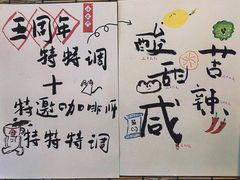 三周年
特特调
+
特邀咖啡师
特特特调
酸甜苦辣
咸